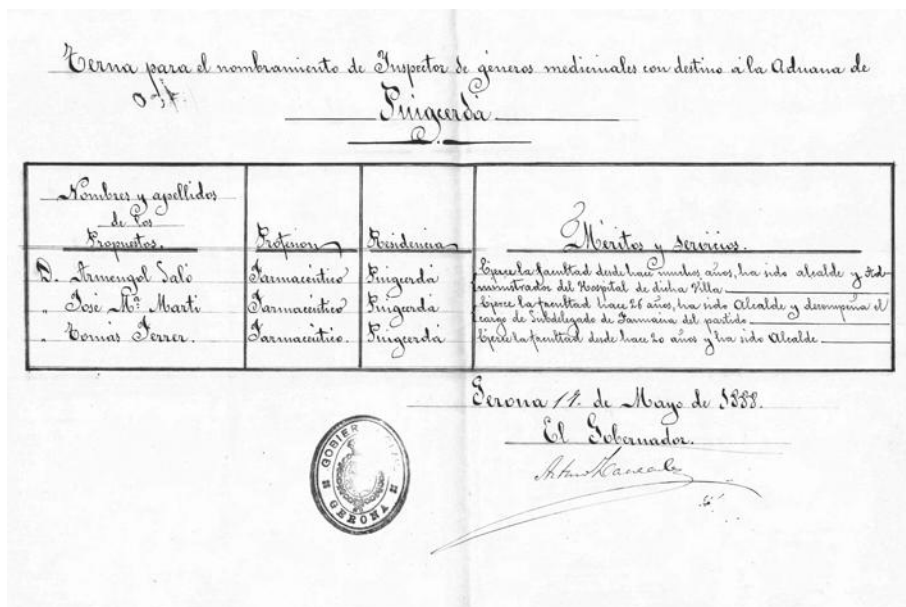 Terna para el nombramiento de Inspector de géneros medicinales con destino á la Aduana de
Puigcerdá.
Nombres y apellidos
de los
Propuestos.
Profesion
Residencia
Meritos y servicios.
D. Armengol Saló
Farmacéutico
Puigcerdá
Ejerce la facultad desde hace muchos años, ha sido alcalde y Ad-
ministrador del Hospital de dicha Villa
" José Mª Marti
Farmacéutico
Puigcerdá
Ejerce la facultad hace 26 años, ha sido Alcalde y desempeña el
cargo de Subdelegado de Farmacia del partido
" Tomás Ferrer.
Farmacéutico.
Puigcerdá
Ejerce la facultad desde hace 20 años y ha sido Alcalde
Gerona 14. de Mayo de 1888.
El Gobernador.
GERONA